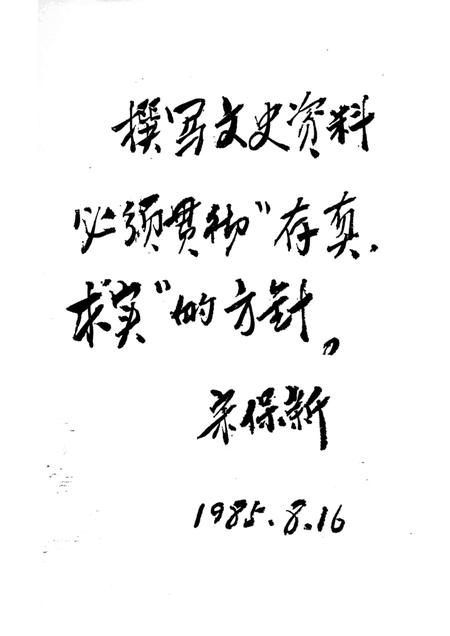 撰写文史资料
必须贯彻“存真、
求实”的方针。
宋保新
1985.8.16